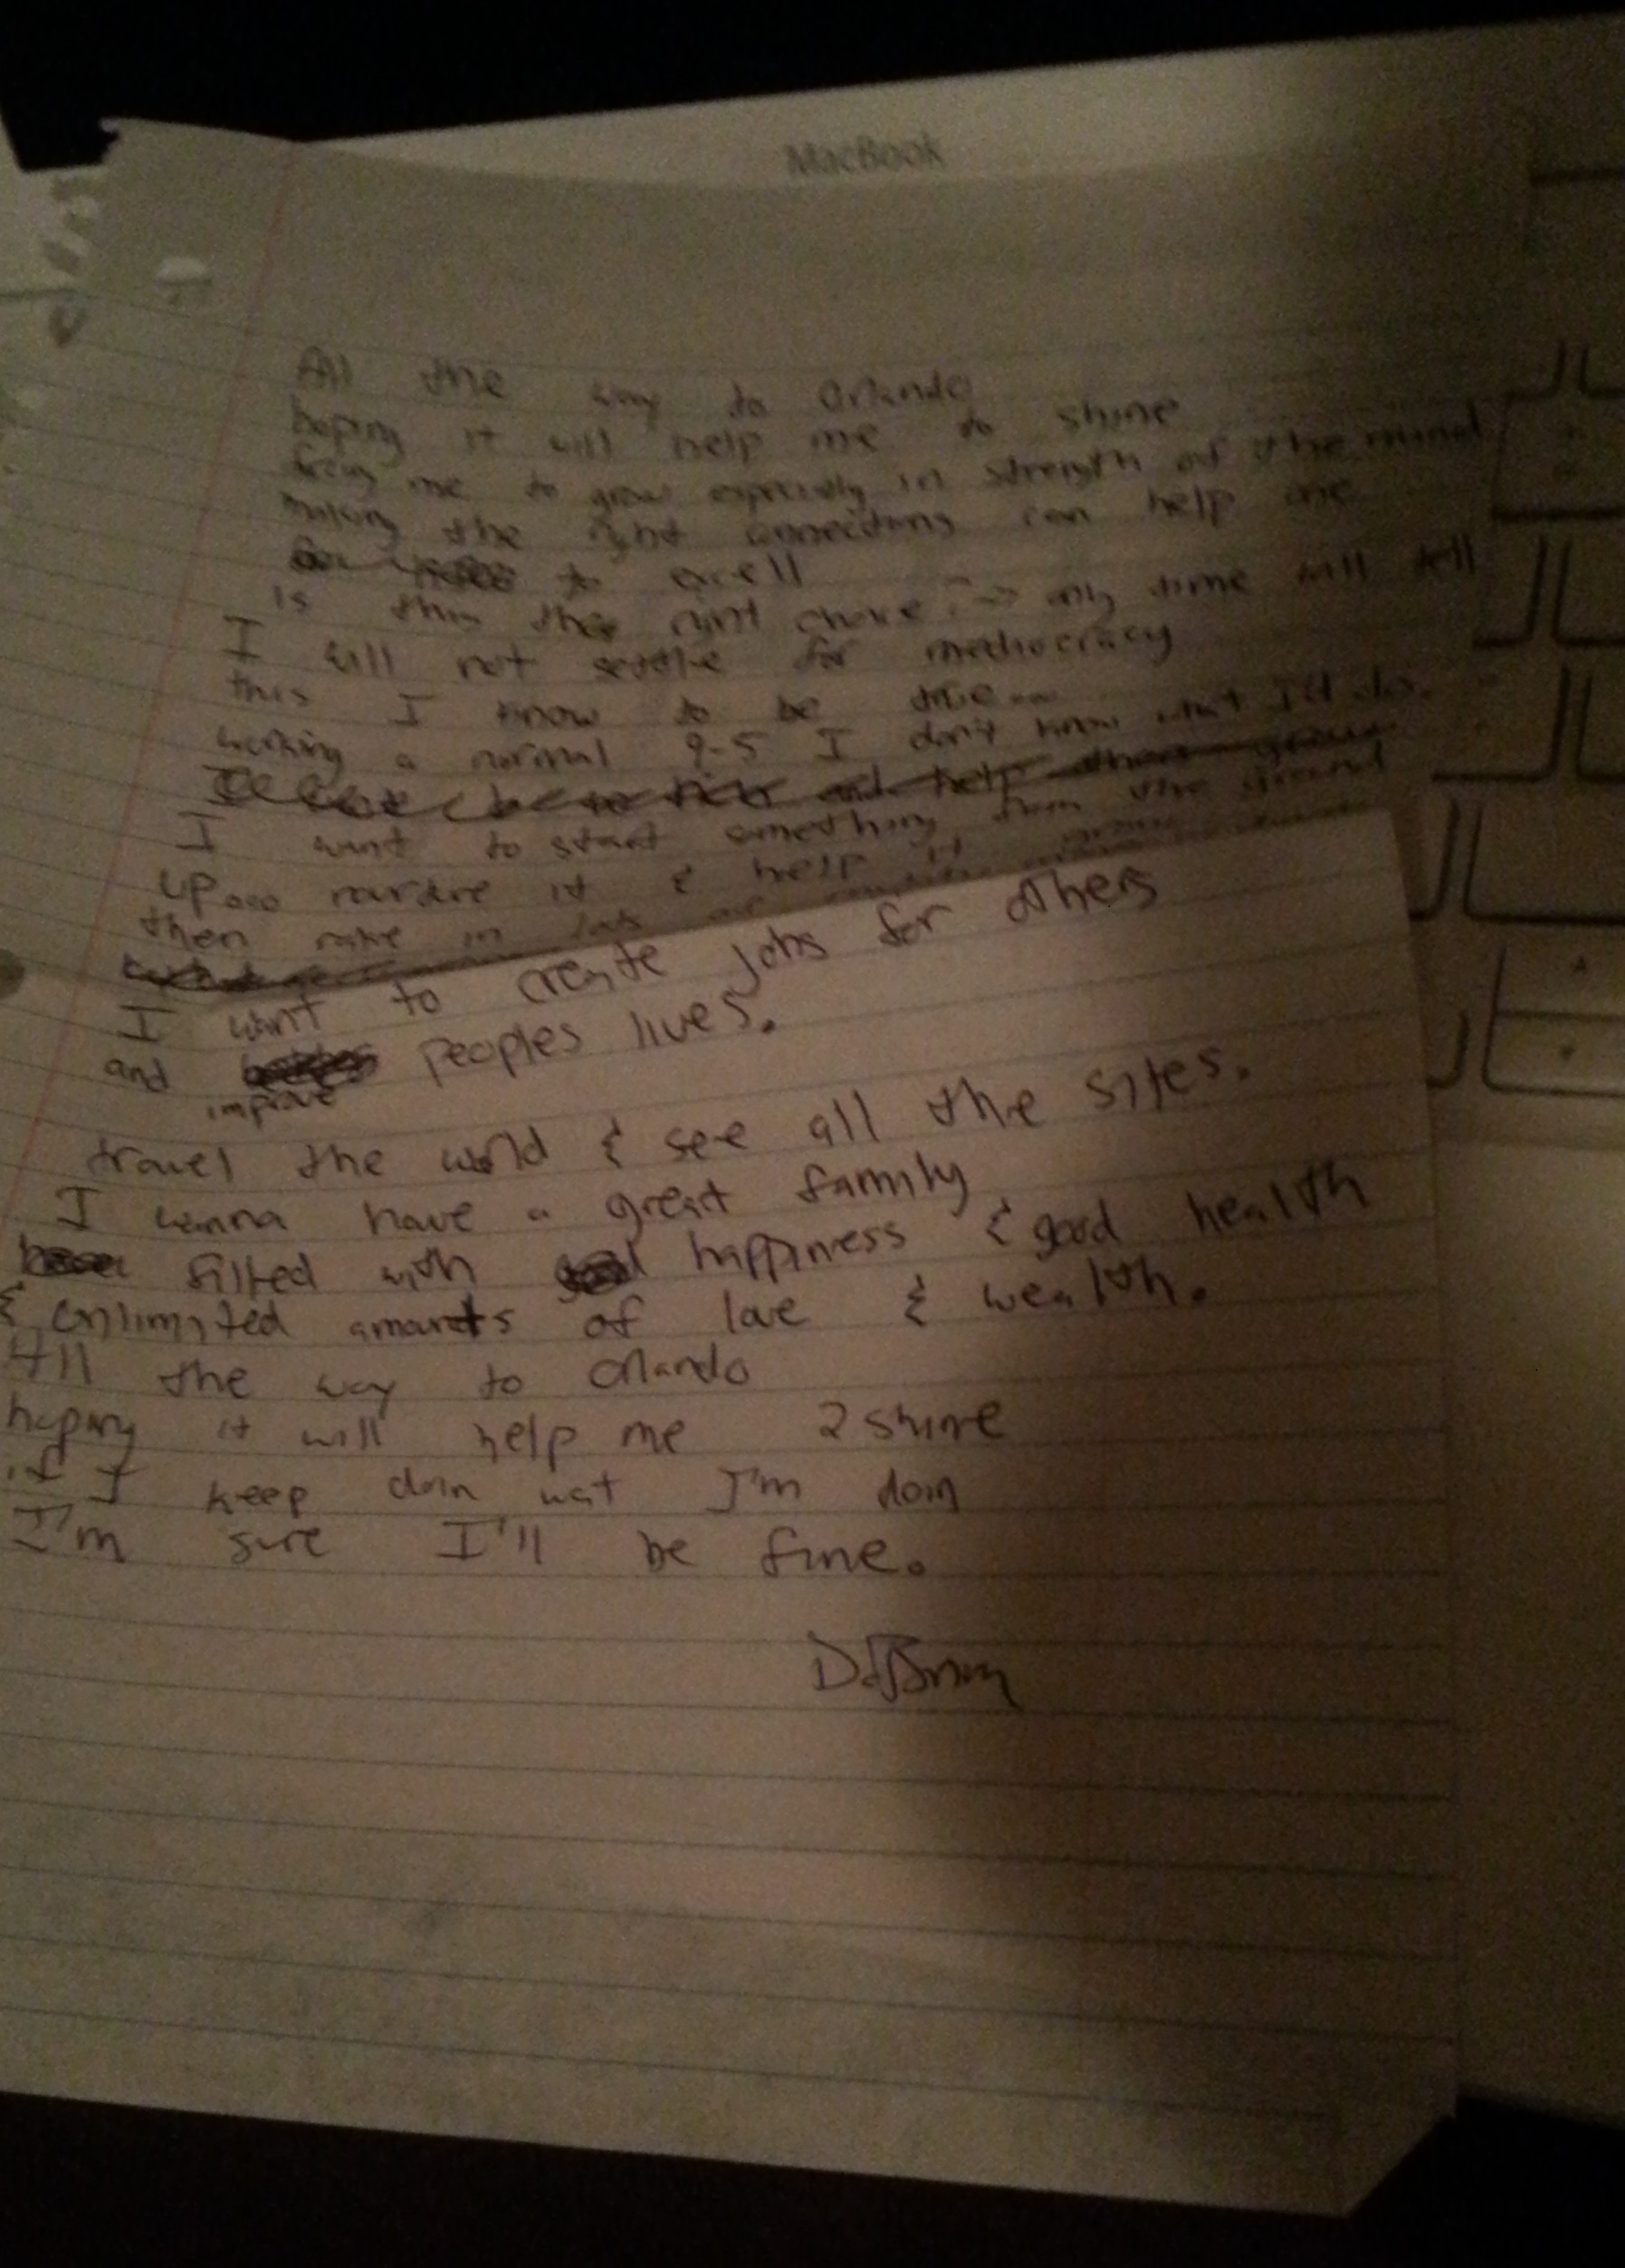 MacBook
All the way to Orlando
hoping it will help me to shine
me to grow especially in strength of the mind
making the right connections can help me
to excell
is this the right choice only time will tell
I will not settle for mediocracy
this I know to be true
working a normal 9-5 I don't know what I'd do.
and help others
I want to start something from the ground
up... it & help it
then rake in lots of
I want to create jobs for others
and peoples lives.
improve
travel the world & see all the sites.
I wanna have a great family
filled with happiness & good health
& unlimited amounts of love & wealth.
All the way to Orlando
hoping it will help me 2 shine
if I keep doin wat I'm doin
I'm sure I'll be fine.